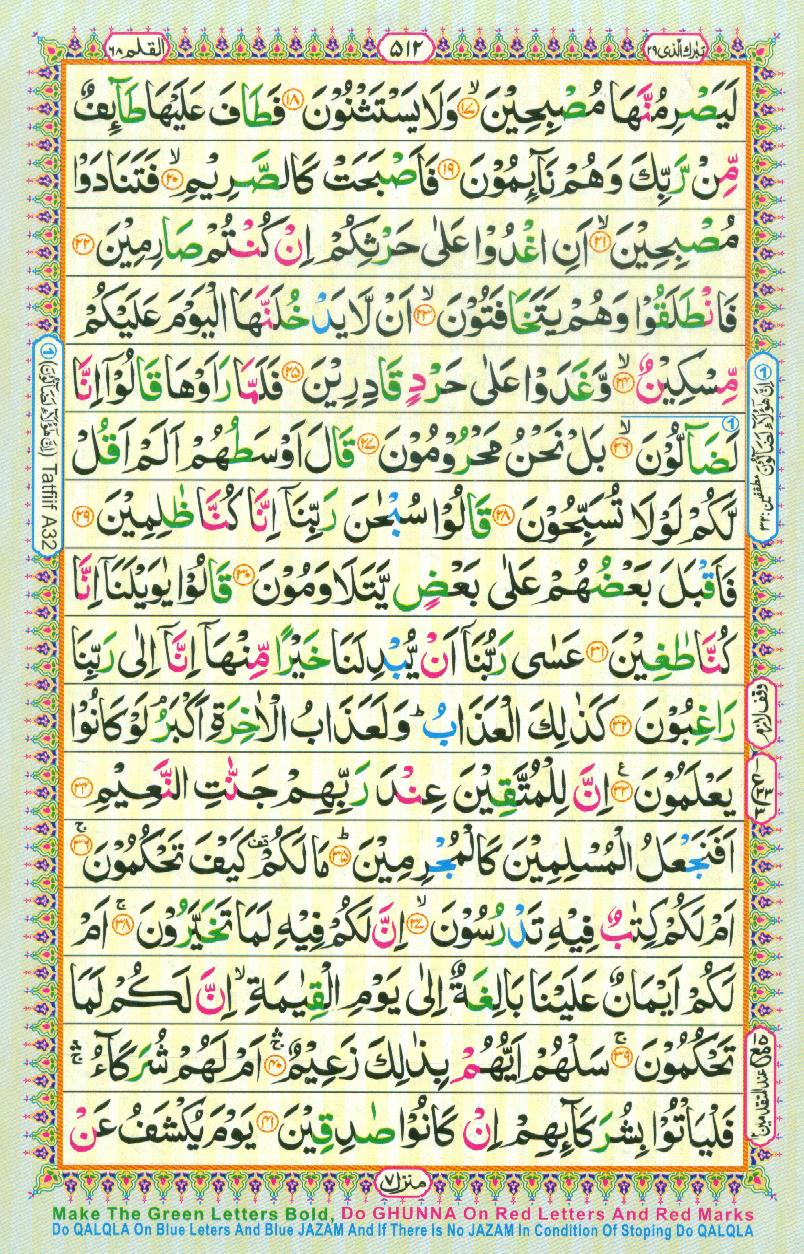 تبٰرك الّذی ۲۹
۵۱۲
القلم ۶۸
لَيَصْرِمُنَّهَا مُصْبِحِيْنَ ۙ‏﴿۱۷﴾ وَلَا يَسْتَثْنُوْنَ ﴿۱۸﴾ فَطَافَ عَلَيْهَا طَآئِفٌ
مِّنْ رَّبِّكَ وَهُمْ نَآئِمُوْنَ ﴿۱۹﴾ فَاَصْبَحَتْ كَالصَّرِيْمِ ۙ‏﴿۲۰﴾ فَتَنَادَوْا
مُصْبِحِيْنَ ۙ‏﴿۲۱﴾ اَنِ اغْدُوْا عَلٰى حَرْثِكُمْ اِنْ كُنْتُمْ صَارِمِيْنَ ﴿۲۲﴾
فَانْطَلَقُوْا وَهُمْ يَتَخَافَتُوْنَ ۙ‏﴿۲۳﴾ اَنْ لَّا يَدْخُلَنَّهَا الْيَوْمَ عَلَيْكُمْ
مِّسْكِيْنٌ ۙ‏﴿۲۴﴾ وَّغَدَوْا عَلٰى حَرْدٍ قَادِرِيْنَ ﴿۲۵﴾ فَلَمَّا رَاَوْهَا قَالُوْۤا اِنَّا
لَضَآلُّوْنَ ۙ‏﴿۲۶﴾ بَلْ نَحْنُ مَحْرُوْمُوْنَ ﴿۲۷﴾ قَالَ اَوْسَطُهُمْ اَلَمْ اَقُلْ
لَّكُمْ لَوْلَا تُسَبِّحُوْنَ ﴿۲۸﴾ قَالُوْا سُبْحٰنَ رَبِّنَاۤ اِنَّا كُنَّا ظٰلِمِيْنَ ﴿۲۹﴾
فَاَقْبَلَ بَعْضُهُمْ عَلٰى بَعْضٍ يَّتَلَاوَمُوْنَ ﴿۳۰﴾ قَالُوْا يٰوَيْلَنَاۤ اِنَّا
كُنَّا طٰغِيْنَ ﴿۳۱﴾ عَسٰى رَبُّنَاۤ اَنْ يُّبْدِلَنَا خَيْرًا مِّنْهَاۤ اِنَّاۤ اِلٰى رَبِّنَا
رَاغِبُوْنَ ﴿۳۲﴾ كَذٰلِكَ الْعَذَابُ ؕ وَلَعَذَابُ الْاٰخِرَةِ اَكْبَرُ ۘ لَوْ كَانُوْا
يَعْلَمُوْنَ ﴿۳۳﴾ اِنَّ لِلْمُتَّقِيْنَ عِنْدَ رَبِّهِمْ جَنّٰتِ النَّعِيْمِ ﴿۳۴﴾
اَفَنَجْعَلُ الْمُسْلِمِيْنَ كَالْمُجْرِمِيْنَ ؕ‏﴿۳۵﴾ مَا لَكُمْ كَيْفَ تَحْكُمُوْنَ ۚ‏﴿۳۶﴾
اَمْ لَكُمْ كِتٰبٌ فِيْهِ تَدْرُسُوْنَ ۙ‏﴿۳۷﴾ اِنَّ لَكُمْ فِيْهِ لَمَا تَخَيَّرُوْنَ ۚ‏﴿۳۸﴾ اَمْ
لَكُمْ اَيْمَانٌ عَلَيْنَا بَالِغَةٌ اِلٰى يَوْمِ الْقِيٰمَةِ ۙ اِنَّ لَكُمْ لَمَا
تَحْكُمُوْنَ ۚ‏﴿۳۹﴾ سَلْهُمْ اَيُّهُمْ بِذٰلِكَ زَعِيْمٌ ۛۚ‏﴿۴۰﴾ اَمْ لَهُمْ شُرَكَآءُ ۛۚ
فَلْيَاْتُوْا بِشُرَكَآئِهِمْ اِنْ كَانُوْا صٰدِقِيْنَ ﴿۴۱﴾ يَوْمَ يُكْشَفُ عَنْ
1
1
اِنَّ هٰٓؤُلَآءِ لَضَآلُّوْنَ مطففين: ۳۲
وقف لازم
1
(اِنَّ هٰٓؤُلَآءِ لَضَآلُّوْنَ) Tatfiif A32
منزل ۷
Make The Green Letters Bold, Do GHUNNA On Red Letters And Red Marks
Do QALQLA On Blue Leters And Blue JAZAM And If There Is No JAZAM In Condition Of Stoping Do QALQLA